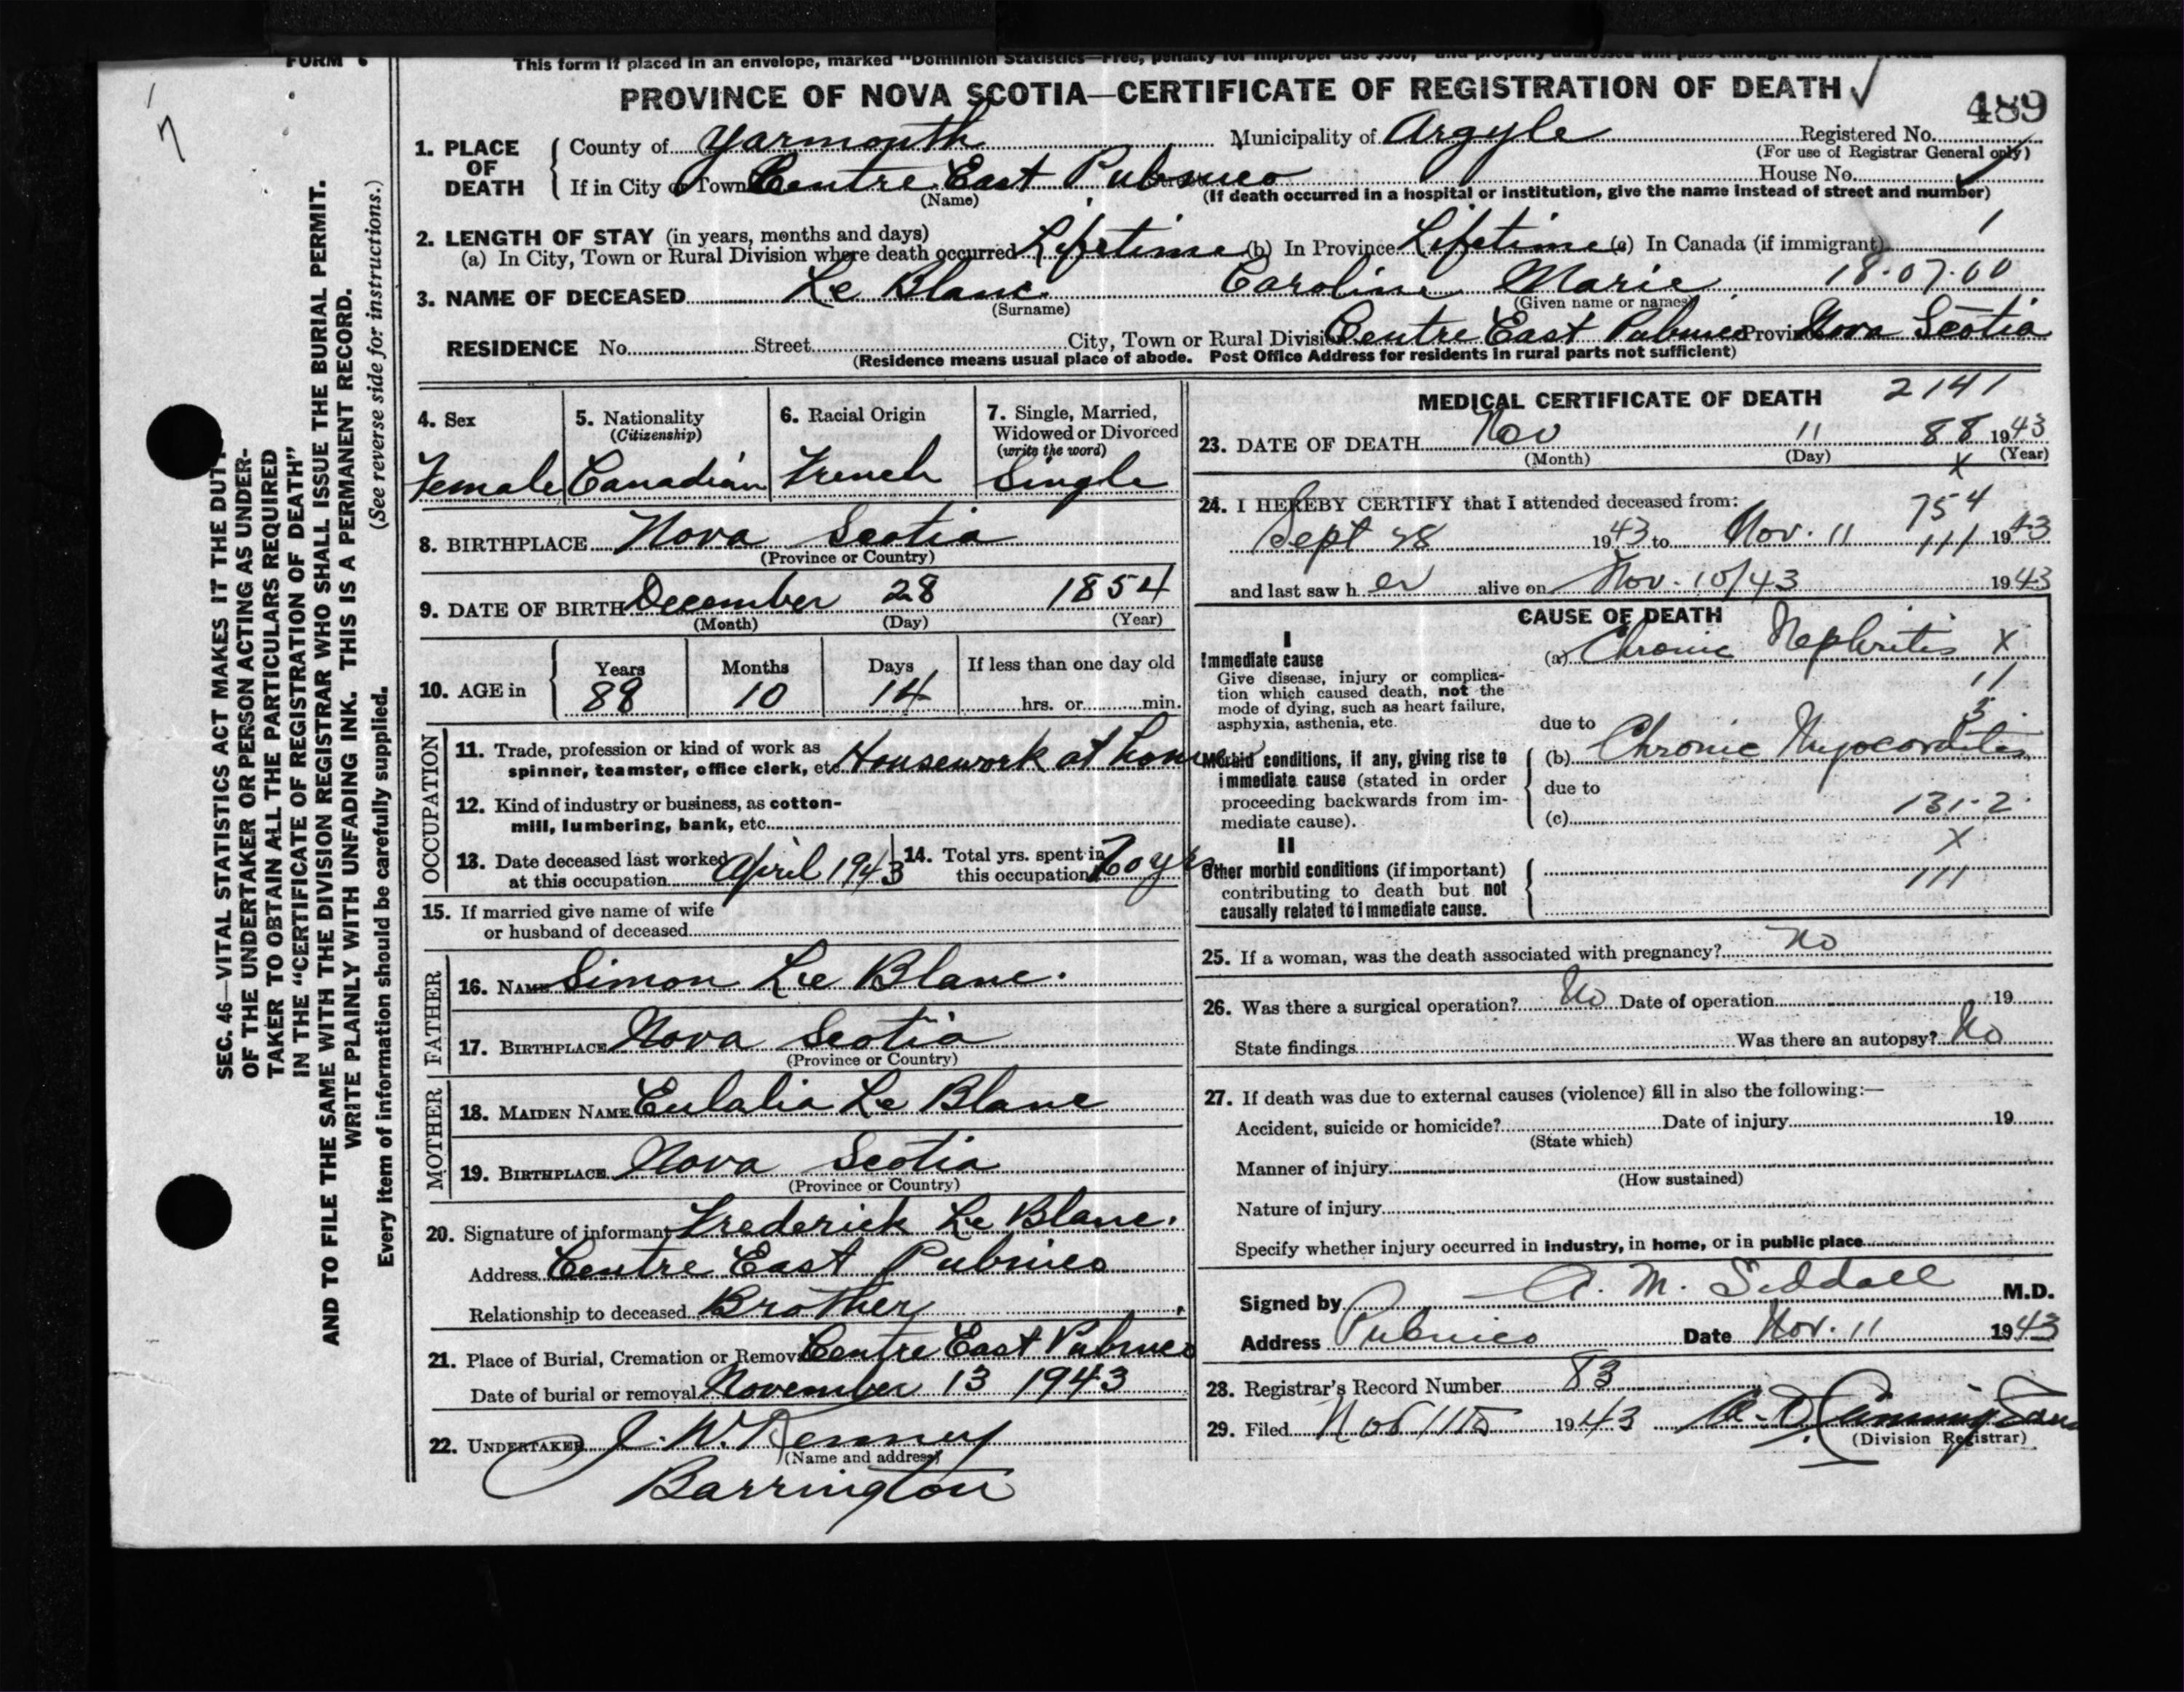 FORM 6
This form if placed in an envelope, marked "Dominion Statistics—Free, penalty for improper use $300," and properly addressed will pass through the mail FREE
PROVINCE OF NOVA SCOTIA—CERTIFICATE OF REGISTRATION OF DEATH
489
7
1. PLACE OF DEATH
County of Yarmouth Municipality of Argyle Registered No.
(For use of Registrar General only)
If in City or Town Centre East Pubnico House No.
(Name) (If death occurred in a hospital or institution, give the name instead of street and number)
2. LENGTH OF STAY (in years, months and days)
(a) In City, Town or Rural Division where death occurred Lifetime (b) In Province Lifetime (c) In Canada (if immigrant)
3. NAME OF DECEASED Le Blanc Caroline Marie 18-07-00
(Surname) (Given name or names)
RESIDENCE No. Street City, Town or Rural Division Centre East Pubnico Province Nova Scotia
(Residence means usual place of abode. Post Office Address for residents in rural parts not sufficient)
4. Sex
Female
5. Nationality
(Citizenship)
Canadian
6. Racial Origin
French
7. Single, Married,
Widowed or Divorced
(write the word)
Single
8. BIRTHPLACE Nova Scotia
(Province or Country)
9. DATE OF BIRTH December 28 1854
(Month) (Day) (Year)
10. AGE in
Years Months Days If less than one day old
88 10 14 hrs. or min.
OCCUPATION
11. Trade, profession or kind of work as
spinner, teamster, office clerk, etc. Housework at home
12. Kind of industry or business, as cotton-
mill, lumbering, bank, etc.
13. Date deceased last worked
at this occupation April 1943
14. Total yrs. spent in
this occupation 70 yrs
15. If married give name of wife
or husband of deceased
FATHER
16. NAME Simon Le Blanc.
17. BIRTHPLACE Nova Scotia
(Province or Country)
MOTHER
18. MAIDEN NAME Eulalia Le Blanc
19. BIRTHPLACE Nova Scotia
(Province or Country)
20. Signature of informant Frederick Le Blanc.
Address Centre East Pubnico
Relationship to deceased Brother
21. Place of Burial, Cremation or Removal Centre East Pubnico
Date of burial or removal November 13 1943
22. UNDERTAKER J. W. Kenney
(Name and address)
Barrington
MEDICAL CERTIFICATE OF DEATH 2141
23. DATE OF DEATH Nov 11 88 1943
(Month) (Day) (Year)
X
24. I HEREBY CERTIFY that I attended deceased from: 754
Sept 28 1943 to Nov. 11 111 1943
and last saw her alive on Nov. 10/43 1943
CAUSE OF DEATH
I
Immediate cause
Give disease, injury or complica-
tion which caused death, not the
mode of dying, such as heart failure,
asphyxia, asthenia, etc.
(a) Chronic Nephritis X
11
due to
Morbid conditions, if any, giving rise to
immediate cause (stated in order
proceeding backwards from im-
mediate cause).
(b) Chronic Myocarditis
due to
131-2.
(c)
X
II
Other morbid conditions (if important)
contributing to death but not
causally related to immediate cause.
111
25. If a woman, was the death associated with pregnancy? No
26. Was there a surgical operation? No Date of operation 19
State findings Was there an autopsy? No
27. If death was due to external causes (violence) fill in also the following:—
Accident, suicide or homicide? Date of injury 19
(State which)
Manner of injury
(How sustained)
Nature of injury
Specify whether injury occurred in industry, in home, or in public place
Signed by A. M. Siddall M.D.
Address Pubnico Date Nov. 11 1943
28. Registrar's Record Number 83
29. Filed 1943
(Division Registrar)
SEC. 46—VITAL STATISTICS ACT MAKES IT THE DUTY
OF THE UNDERTAKER OR PERSON ACTING AS UNDER-
TAKER TO OBTAIN ALL THE PARTICULARS REQUIRED
IN THE "CERTIFICATE OF REGISTRATION OF DEATH"
AND TO FILE THE SAME WITH THE DIVISION REGISTRAR WHO SHALL ISSUE THE BURIAL PERMIT.
WRITE PLAINLY WITH UNFADING INK. THIS IS A PERMANENT RECORD.
Every item of information should be carefully supplied. (See reverse side for instructions.)